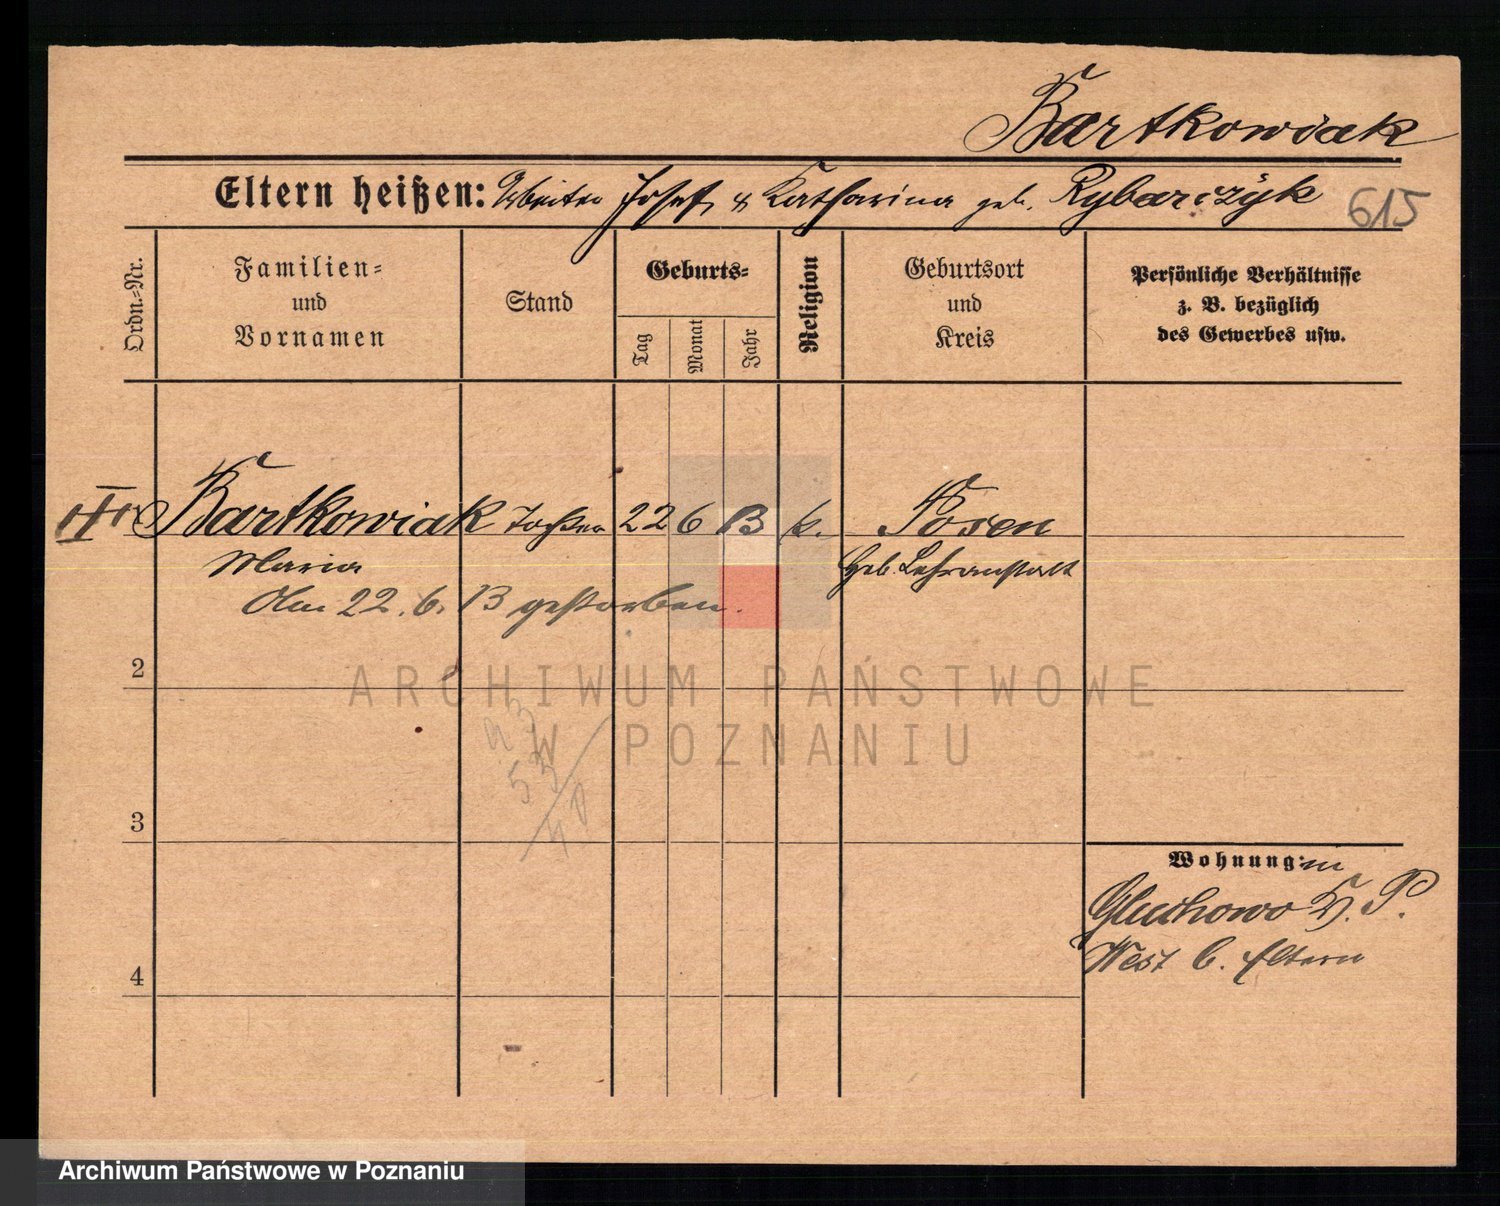 Bartkowiak
Eltern heißen: Arbeiter Josef u Katharina geb. Rybarczyk 615
Ordn.=Nr.
Familien=
und
Vornamen
Stand
Geburts=
Tag
Monat
Jahr
Religion
Geburtsort
und
Kreis
Persönliche Verhältnisse
z. B. bezüglich
des Gewerbes usw.
Bartkowiak Tochter 22 6 13 k. Posen
Maria Heb. Lehranstalt
Am 22. 6. 13 gestorben.
2
ARCHIWUM PAŃSTWOWE
W POZNANIU
3
Wohnung: in
Gluchowo Kr. P.
West b. Eltern
4
Archiwum Państwowe w Poznaniu